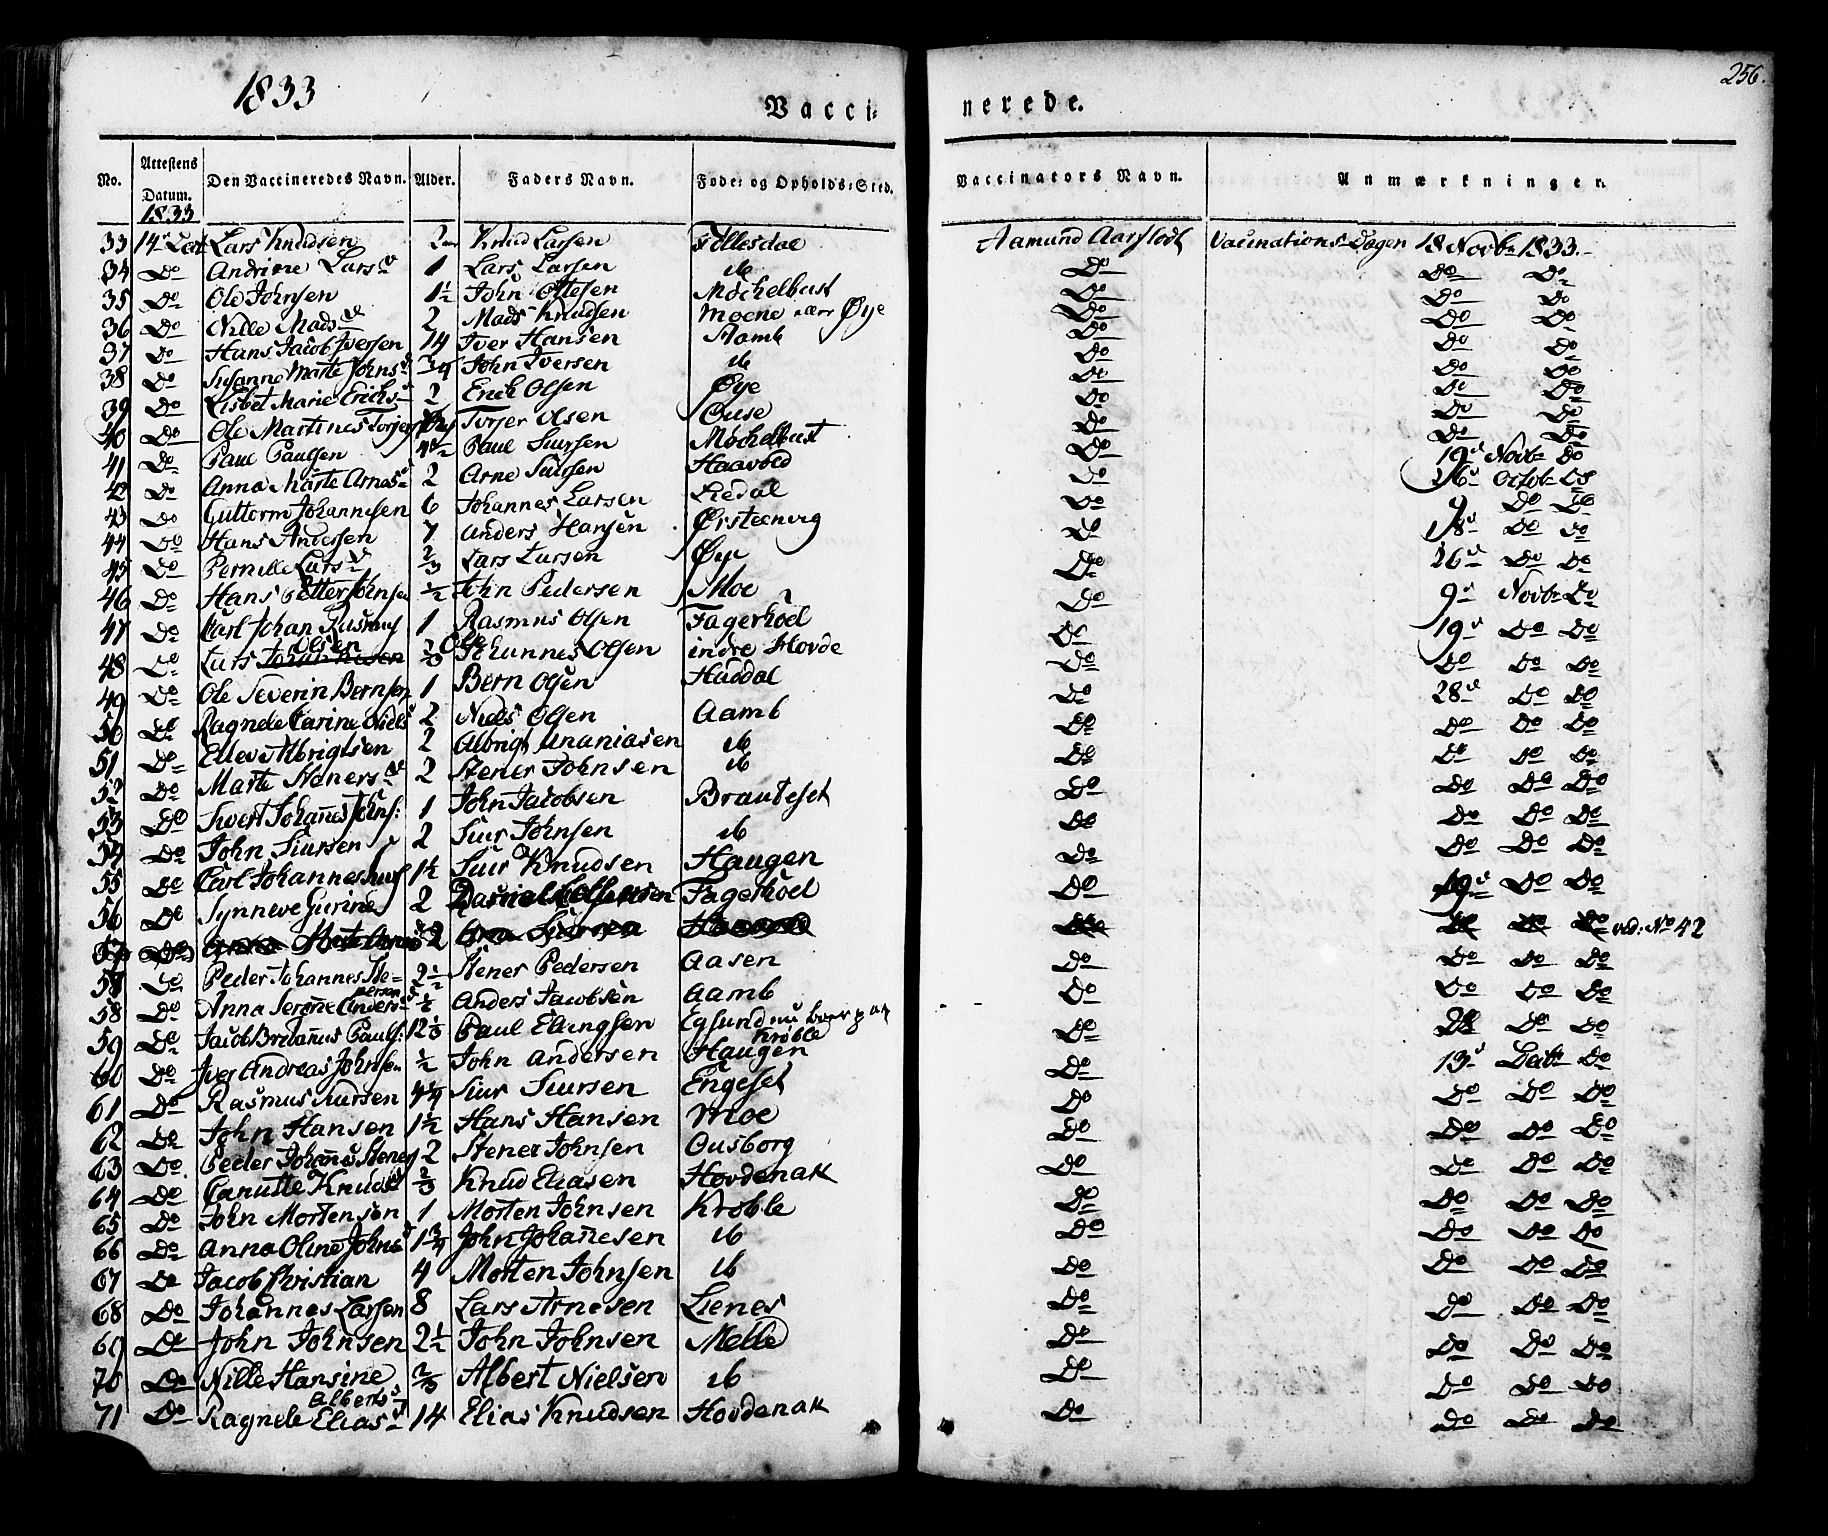 256.
1833
Vacci= nerede.
No. Attestens Datum. Den Vaccineredes Navn. Alder. Faders Navn. Føde- og Opholds-Sted. Vaccinators Navn. Anmærkninger.
1833
33 14d Lars Knudsen 2 Knud Larsen Follesdal Aamund Aarflodt Vaccinations-Dagen 18 Novbr 1833.
34 Do Andrine Larsd 1 Lars Larsen ib Do Do Do
35 Do Ole Johnsen 1½ John Ottesen Møchelbust Do Do Do
36 Do Nille Madsd 2 Mads Knudsen Moene Øye Do Do Do
37 Do Hans Jacob Iversen 14 Iver Hansen Aamb Do Do Do
38 Do Susanne Marte Johnsd 3/4 John Iversen ib Do Do Do
39 Do Lisbet Marie Ericksd 2 Erick Olsen Øye Do Do Do
40 Do Ole Martines Torjers Torjer Olsen Ouse Do Do Do
41 Do Paul Paulsen Paul Siursen Møchelbust Do Do Do
42 Do Anna Marte Arnesd 2 Arne Siursen Haavold Do 19d Novbr Do
43 Do Guttorm Johannesen 6 Johannes Larsen Liedal Do 26d Octob Do
44 Do Hans Andersen 7 Anders Hansen Ørsteenvig Do 9 Do Do
45 Do Pernille Larsd 2/3 Lars Larsen Øye Do 18d Do Do
46 Do Hans Petter Johnsen ½ John Pedersen Moe Do 26d Do Do
47 Do Carl Johan Rasmus 1 Rasmus Olsen Fagerhoel Do 9d Novbr Do
48 Do Lars Olsen Johannes Olsen indre Hovde Do 19d Do Do
49 Do Ole Severin Bernsen 1 Bern Olsen Husdal Do Do Do Do
50 Do Ragnele Carine Niels 2 Niels Olsen Aamb Do 28d Do Do
51 Do Ellev Albrigtsen 2 Albrigt Ananiasen ib Do Do Do Do
52 Do Marte Stenersd 2 Stener Johnsen ib Do Do Do Do
53 Do Sivert Johannes Johns: 1 John Jacobsen Brauteset Do Do Do Do
54 Do John Siursen 2 Siur Johnsen ib Do Do Do Do
55 Do Carl Johannes 1½ Siur Knudsen Haugen Do Do Do Do
56 Do Synneve Gurine 2 Fagerhoel Do 19d Do Do
57 Do Anna Marte Arnesd 2 Arne Siursen Haavold Do Do Do Do vid: No 42
58 Do Peder Johannes Ste=nersen 2½ Stener Pedersen Aasen Do Do Do Do
58 Do Anna Serine Andersd ½ Anders Jacobsen Aamb Do Do Do Do
59 Do Jacob Pauls: 12 Paul Ellingsen Egsund nu boer paa Krøble Do 28 Do Do
60 Do Iver Andreas Johnsen ½ John Andersen Haugen Do 13d Decbr Do
61 Do Rasmus Siursen Siur Siursen Engeset Do Do Do Do
62 Do John Hansen 1½ Hans Hansen Moe Do Do Do Do
63 Do Peder Johanes Steners 2 Stener Johnsen Ousborg Do Do Do Do
64 Do Canutte Knudsd 2/3 Knud Eliasen Hovdenak Do Do Do Do
65 Do John Mortensen 1 Morten Johnsen Krøble Do Do Do Do
66 Do Anna Oline Johnsd 1¾ John Johanesen ib Do Do Do Do
67 Do Jacob Christian 4 Morten Johnsen ib Do Do Do Do
68 Do Johannes Larsen 8 Lars Arnesen Lienes Do Do Do Do
69 Do John Johnsen 2½ John Johnsen Melle Do Do Do Do
70 Do Nille Hansine Albertsd 2/3 Albert Nielsen ib Do Do Do Do
71 Do Ragnele Eliasd 14 Elias Knudsen Hovdenak Do Do Do Do